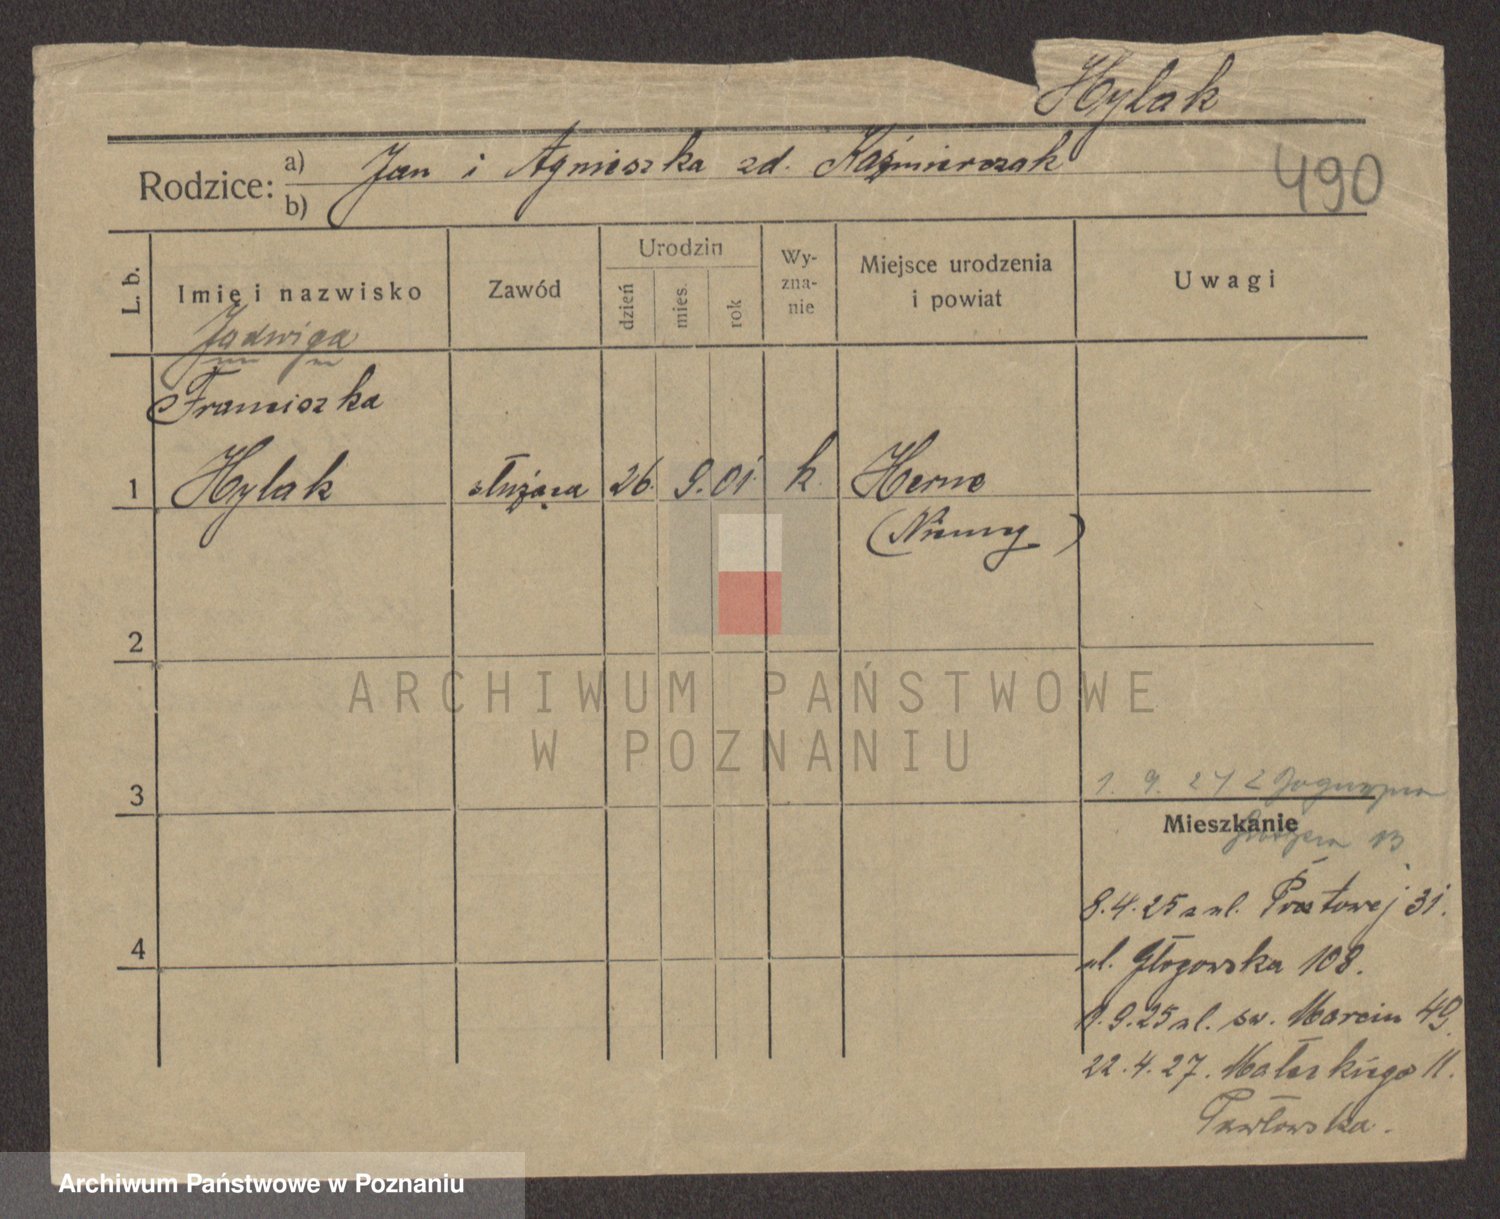 Hylak
Rodzice: a) Jan i Agnieszka zd. Kaźmierczak
b)
490
L. b.
Imię i nazwisko
Zawód
Urodzin
dzień
mies.
rok
Wy-
zna-
nie
Miejsce urodzenia
i powiat
Uwagi
Jadwiga
Franciszka
1 Hylak służąca 26. 9. 01. k. Herne
(Niemcy)
2
ARCHIWUM PAŃSTWOWE
W POZNANIU
3
1. 9. 27
Mieszkanie
13
8.4.25 z ul. 31.
4
ul. Głogowska 108.
1.9.25 ul. św. Marcin 49.
22.4.27. Matejkigo 11.
Pawłowska.
Archiwum Państwowe w Poznaniu